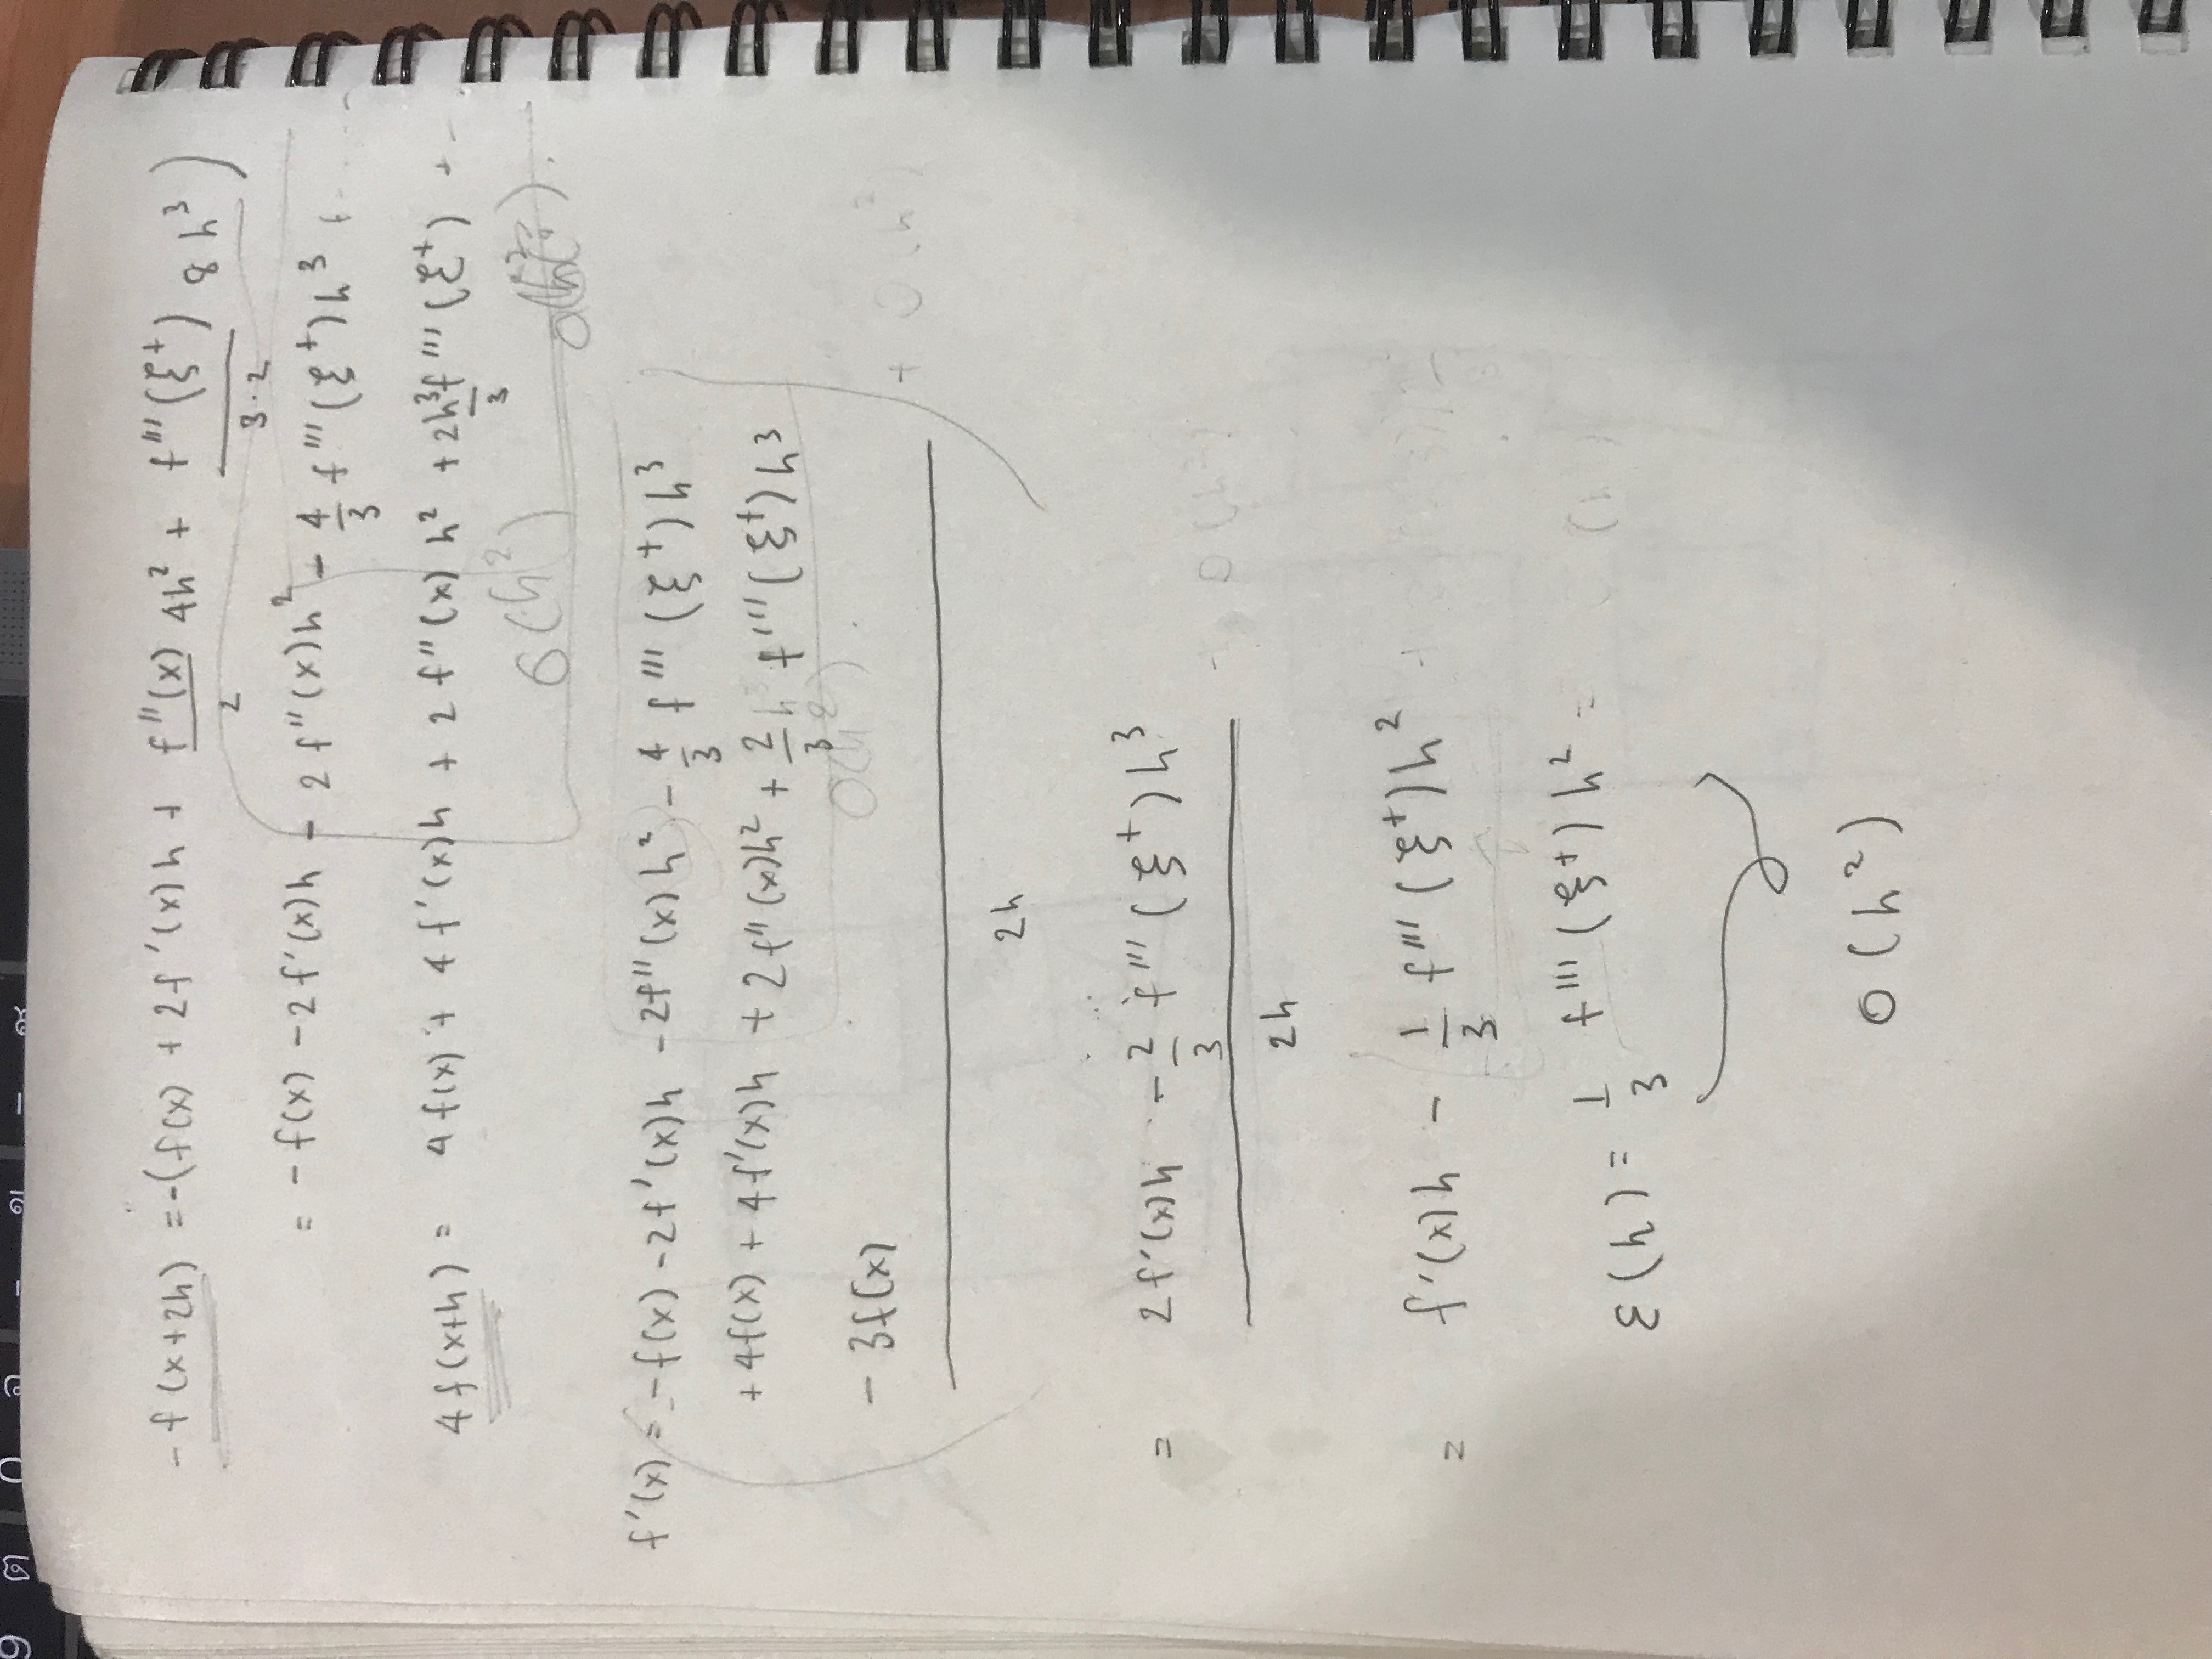 9 ต
-f(x+2h) = -(f(x) + 2f'(x)h + f''(x)/2 4h² + f'''(ξ⁺)/3·2 8h³)
= -f(x) - 2f'(x)h - 2f''(x)h² - 4/3 f'''(ξ⁺)h³ + ....
4f(x+h) = 4f(x) + 4f'(x)h + 2f''(x)h² + 2h³/3 f'''(ξ⁺) + ..
O(h²)
f'(x) = -f(x) - 2f'(x)h - 2f''(x)h² - 4/3 f'''(ξ⁺)h³
+ 4f(x) + 4f'(x)h + 2f''(x)h² + 2/3 f'''(ξ⁺)h³
O(h²)
- 3f(x)
+ O(h²)
2h
= 2f'(x)h - 2/3 f'''(ξ⁺)h³
2h
= f'(x)h - 1/3 f'''(ξ⁺)h²
ε(h) = 1/3 f'''(ξ⁺)h² =
O(h²)